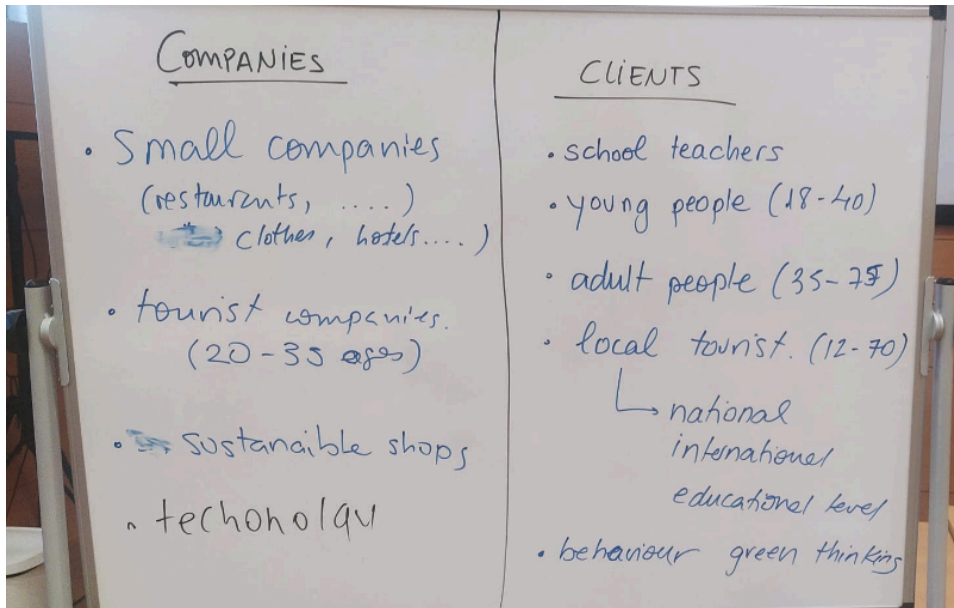 COMPANIES
• Small companies
(restaurants, ....)
clothes, hotels....)
• tourist companies.
(20-35 ages)
• sustancible shops
• techonolgy
CLiENTS
• school teachers
• young people (18-40)
• adult people (35-75)
• local tourist. (12-70)
↳ national
international
educational level
• behaviour green thinking